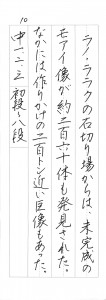 10
ラノ・ララクの石切り場からは、未完成の
モアイ像が約二百六十体も発見された。
なかには作りかけの二百トン近い巨像もあった。
中一・二・三 初段～八段